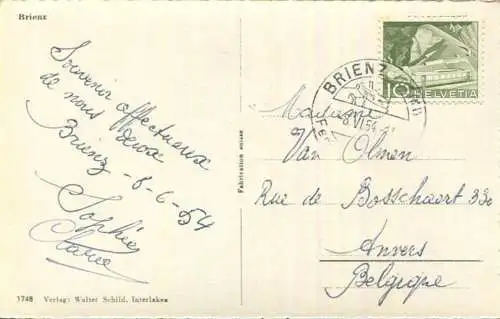 Brienz
Souvenir affectueux
de nous deux
Brienz - 8-6-54
Sophie
1748 Verlag: Walter Schild, Interlaken
Fabrication suisse
10 HELVETIA
BRIENZ
8.VI.54
Madame
Van Olmen
Rue de Bosschaert 330
Anvers
Belgique